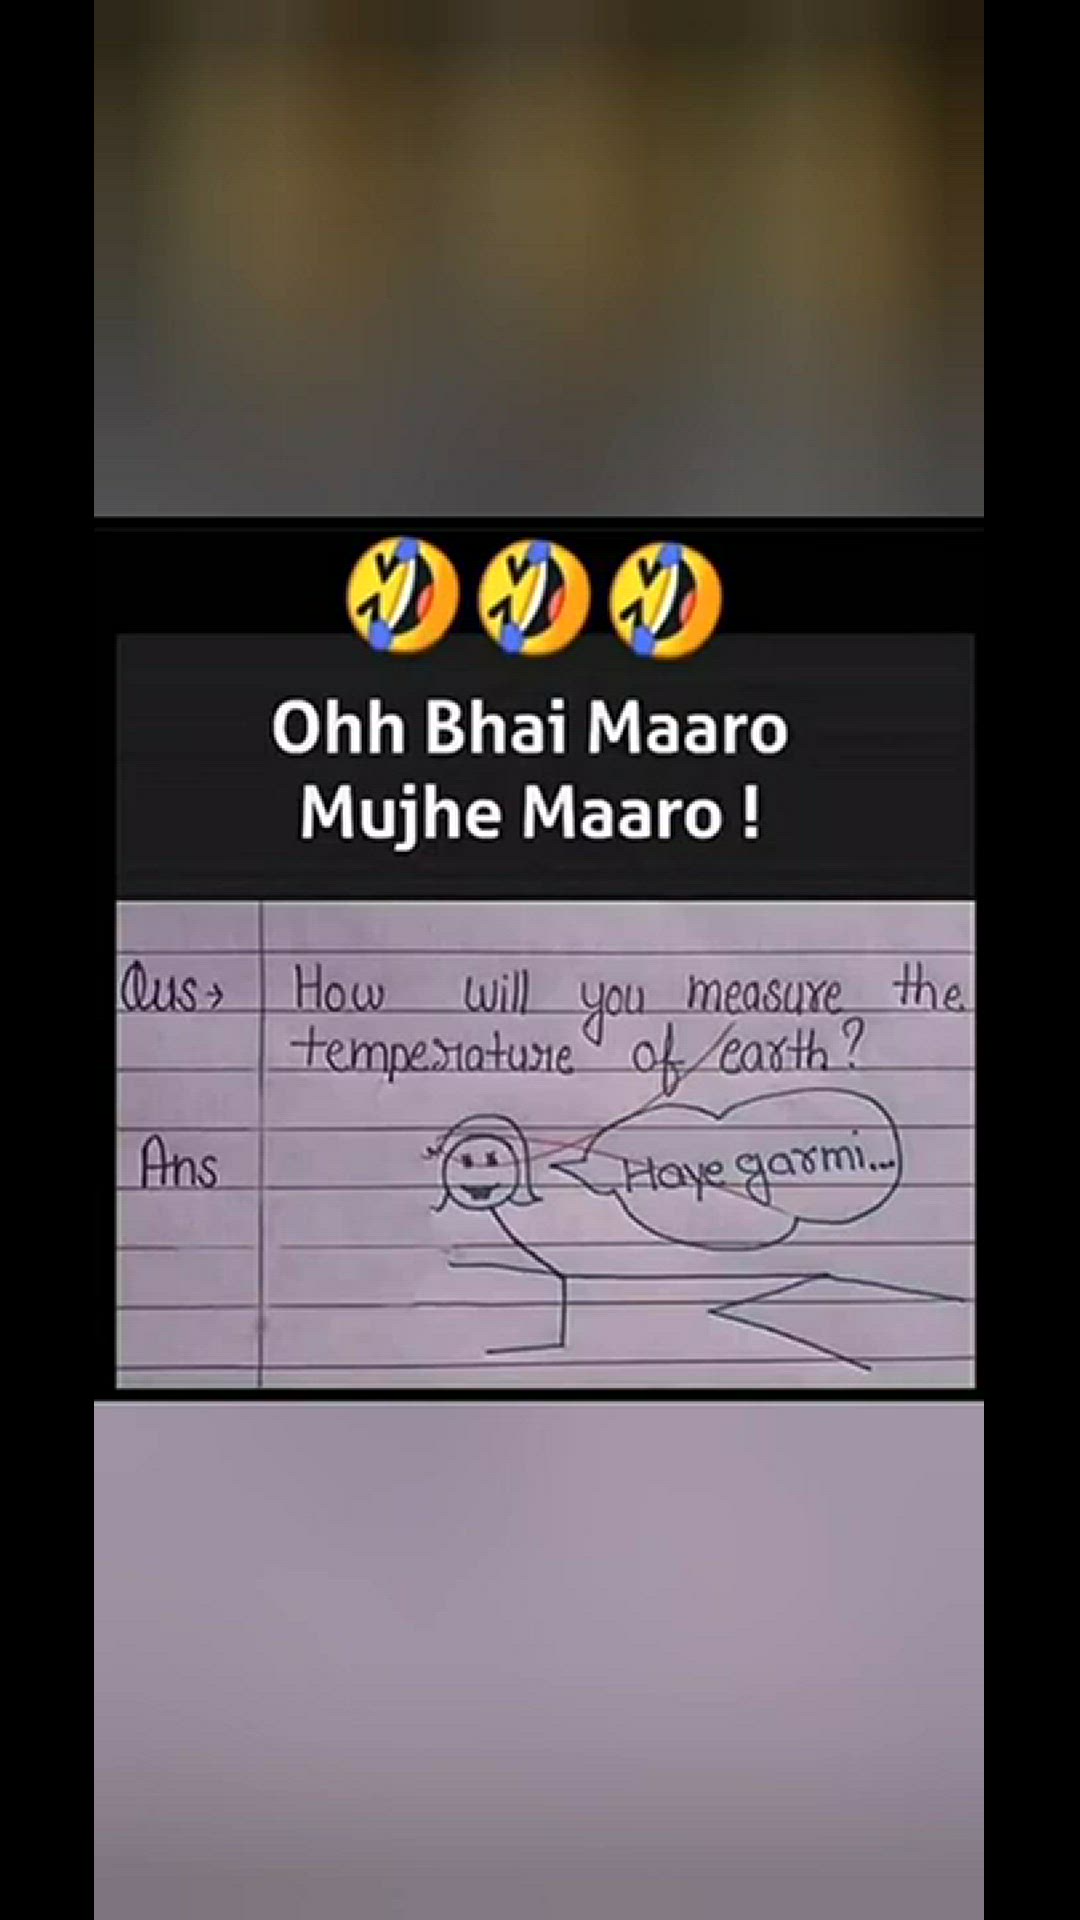 🤣🤣🤣
Ohh Bhai Maaro
Mujhe Maaro !
Qus→ How will you measure the
temperature of earth?
Ans Haye garmi...